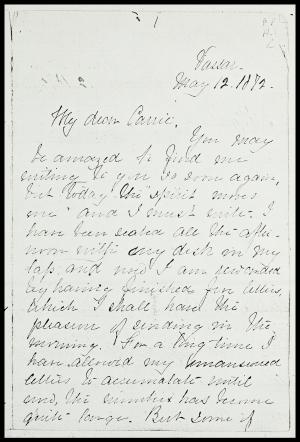 Vassar.
May 12. 1882.
My dear Carrie,
You may
be amazed to find me
writing to you so soon again,
but today the "spirit moves
me" and I must write. I
have been seated all the after-
noon with my desk in my
lap, and now I am rewarded
by having finished five letters,
which I shall have the
pleasure of sending in the
morning. For a long time I
have allowed my unanswered
letters to accumulate until
now, the number has become
quite large. But some of